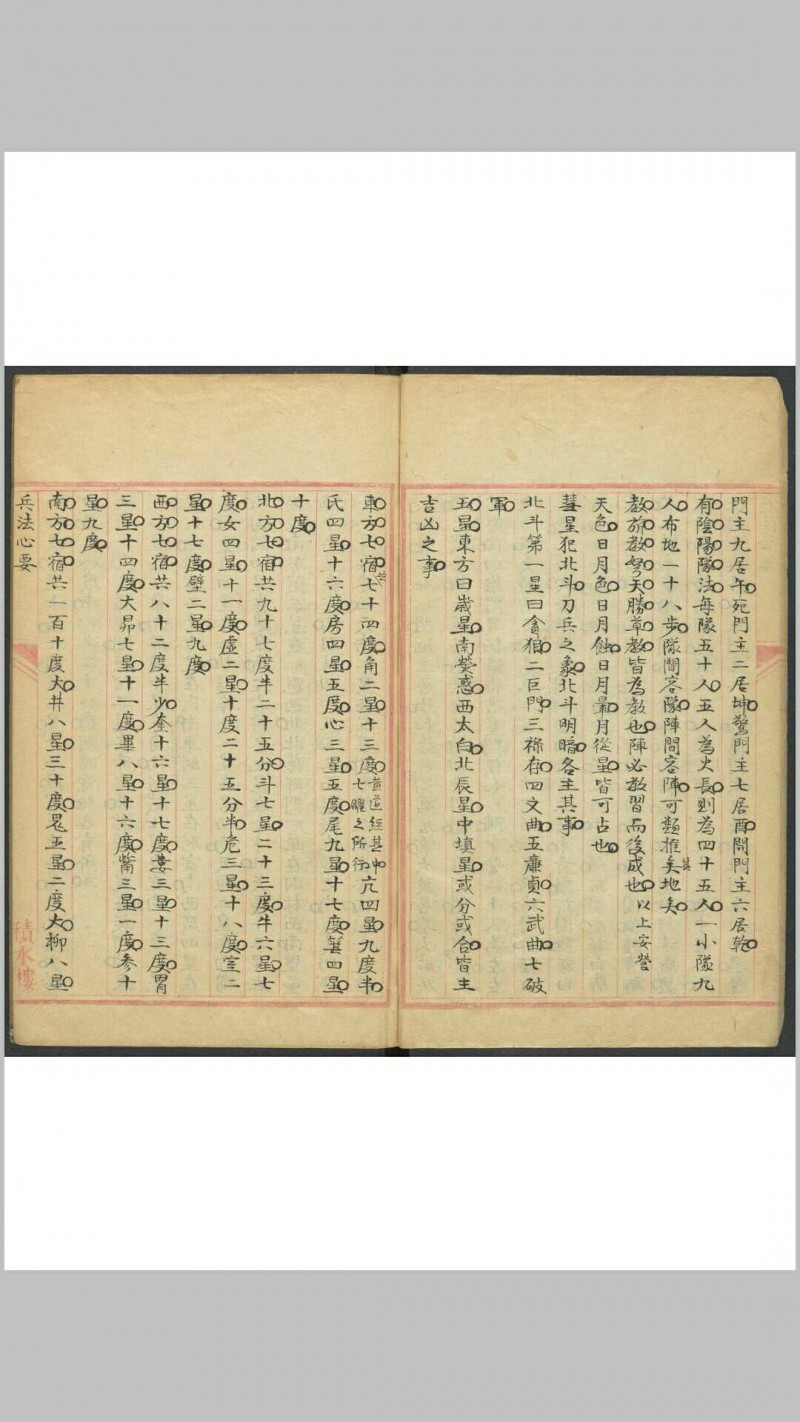 門主九居午死門主二居坤驚門主七居酉開門主六居乾
有陰陽隊法每隊五十人五人為火長則為四十五人一小隊九
人布地一十八步隊間容隊陣間容陣可類推矣其地矣
教旂教弩天勝草教皆為教也陣必教習而後成也以上安營
天色日月色日月蝕日月暈月從星皆可占也
彗星犯北斗刀兵之象北斗明暗各主其事
北斗第一星曰貪狼二巨門三祿存四文曲五廉貞六武曲七破
軍
五星東方曰歲星南熒惑西太白北辰星中填星或分或合皆主
吉凶之事
東方七宿共七十四度角二星十三度黃道經其中七曜之所行亢四星九度半
氐四星十六度房四星五度心三星五度尾九星十七度箕四星
十度
北方七宿共九十七度半二十五分斗七星二十三度牛六星七
度女四星十一度虛二星十度二十五分半危三星十八度室二
星十七度壁二星九度
西方七宿共八十二度半少奎十六星十七度婁三星十三度胃
三星十四度大昴七星十一度畢八星十六度觜三星一度參十
星九度
南方七宿共一百十度大井八星三十度鬼五星二度大柳八星
兵法心要
積水樓